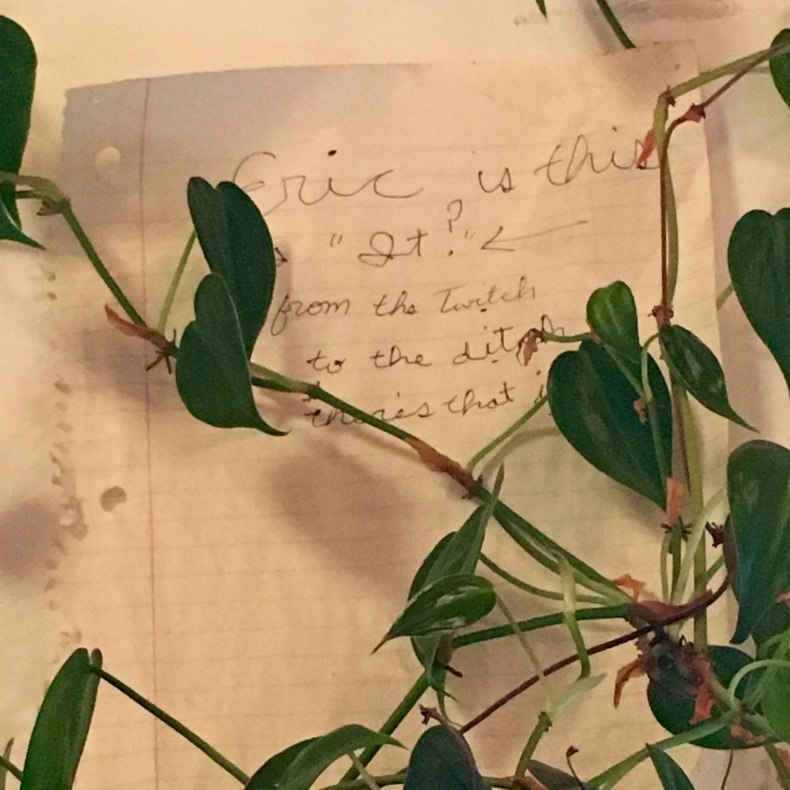 Eric is this
"It?" ←
from the Twitch
to the ditch
theres that